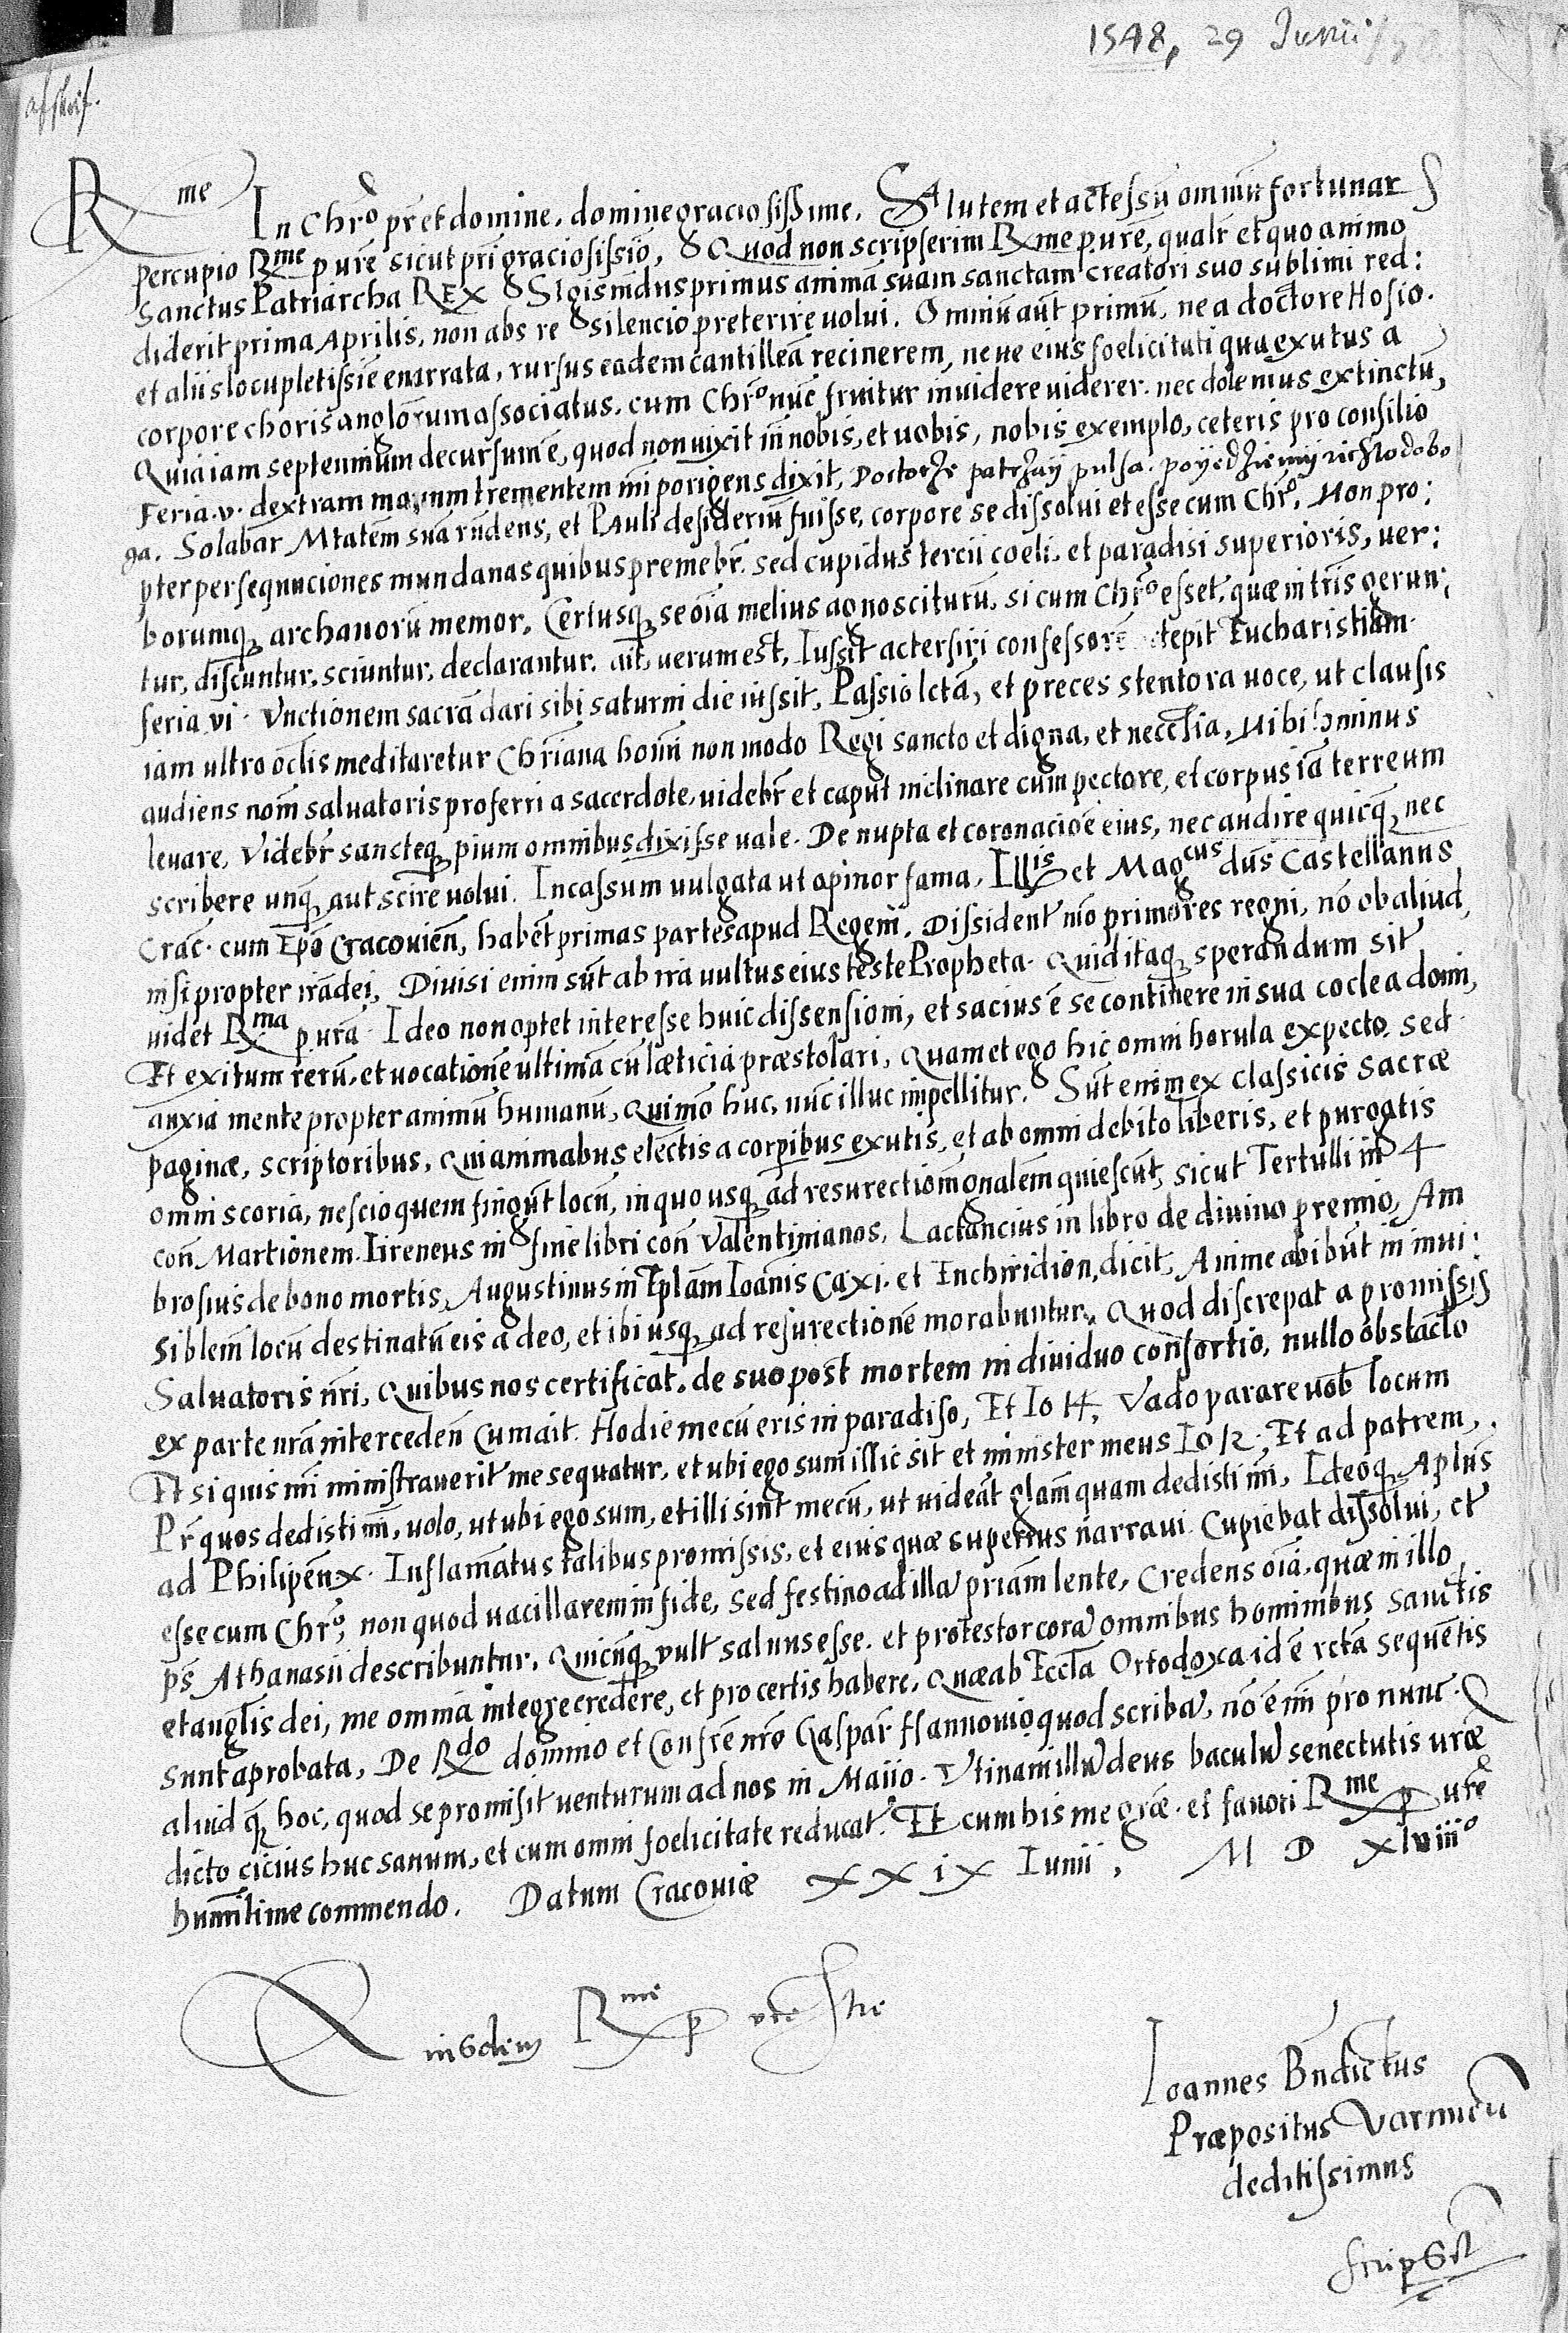 1548, 29 Junii
Rme In Chro pr et domine, domine graciosissime. Salutem et accessū omniū fortunar
percupio Rme p vre sicut pri graciosissio, & Quod non scripserim Rme p vre, qualr et quo animo
Sanctus Patriarcha REX Sigismūdus primus animā suam sanctam creatori suo sublimi red:
diderit prima Aprilis, non abs re silencio preterire uolui. Omniū aut primū, ne a doctore Hosio.
et aliis locupletissie enarrata, rursus eadem cantilleā recinerem, neue eius foelicitati qua exutus a
corpore choris anglorum associatus. cum Chro nūc fruitur inuidere uiderer. nec dolemus extinctū,
Quia iam septennium decursum ē, quod non uixit in nobis, et uobis, nobis exemplo, ceteris pro consilio
Feria .v. dextram manum trementem mi porigens dixit, Doctorze patrzay pulsa. poyedziemy richlo do bo
ga. Solabar Mtatem suā rūdens, et Pauli desideriū fuisse, corpore se dissolui et esse cum Chro, Non pro:
pter persequuciones mundanas quibus premebr. sed cupidus tercii coeli, et paradisi superioris, uer:
borumq archanorū memor, Certusq se oīa melius agnosciturū, si cum Chro esset, quæ in tris gerun:
tur, discuntur, sciuntur, declarantur. ait, uerum est, Iussit accersiri confessorē cepit Eucharistiam
feria vi. Vnctionem sacrā dari sibi saturni die iussit, Passio lctā, et preces stentora uoce, ut clausis
iam ultro oclis meditaretur Chriana homi non modo Regi sancto et digna, et necctia, Nihilominus
audiens nom saluatoris proferri a sacerdote, uidebr et caput inclinare cum pectore, et corpus iā terreum
leuare, Videbr sancteq pium omnibus dixisse uale. De nupta et coronacioē eius, nec audire quicq nec
scribere unq aut scire uolui. Incassum uulgata ut opinor fama, Illis et Magcus dus Castellanus
Crac. cum Epo Cracouien, habēt primas partes apud Regem. Dissident nro primores regni, nō ob aliud
nisi propter irā dei, Diuisi enim sūt ab ira uultus eius teste Propheta. Quid itaq sperandum sit
uidet Rma p vra. Ideo non optet interesse huic dissensioni, et sacius ē se continere in sua coclea domi,
Et exitum rerū, et uocationē ultimā cū læticia præstolari, Quam et ego hic omni horula expecto. sed
anxia mente propter animū humanū, qui mo huc, nūc illuc impellitur. Sūt enim ex classicis sacræ
paginæ, scriptoribus, qui animabus electis a corpibus exutis, et ab omni debito liberis, et purgatis
omni scoria, nescio quem fingūt locū, in quo usq ad resurectiom gnalem quiescūt, sicut Tertulli in 4
con Martionem. Iireneus in fine libri con Valentinianos, Lactancius in libro de diuino premio, Am
brosius de bono mortis, Augustinus in Eplam Ioannis Ca xi. et Enchiridion, dicit, Anime abibūt in inui:
siblem locū destinatū eis a deo, et ibi usq ad resurectionē morabuntur. Quod discrepat a promissis
Saluatoris nri, Quibus nos certificat, de suo post mortem indiuiduo consortio, nullo obstaclo
ex parte nra interceden Cum ait. Hodie mecū eris in paradiso, Et Io 14. Vado parare uob locum
Et si quis mi ministrauerit me sequatur, et ubi ego sum illic sit et minister meus Io 12. Et ad patrem,
Pr quos dedisti mi, uolo, ut ubi ego sum, et illi sint mecū, ut uideāt glam quam dedisti mi, Ideoq Aplus
ad Philipen x. Inflamatus talibus promissis, et eius quæ superius narraui Cupiebat dissolui, et
esse cum Chro, non quod uacillarem in fide, sed festino ad illā priam lente, Credens oīa, quæ in illo
ps Athanasii describuntur, Quicūq vult saluus esse. et protestor corā omnibus hominibus sanctis
et anglis dei, me omnia integre credere, et pro certis habere, Quæ ab Eccla Ortodoxa id ē rctā sequentis
sunt aprobata, De Rdo domino et Confre nro Gaspar Hannouio quod scribā, nō ē mi pro nunc
aliud q hoc, quod se promisit uenturum ad nos in Maiio. Vtinam illū deus baculū senectutis uræ
dicto cicius huc sanum, et cum omni foelicitate reducat. Et cum his me græ. et fauori Rme p vre
humlime commendo. Datum Cracouiæ XXIX Iunii, M D Xlviiio
Eiusdem Rme p vre
Ioannes Bndictus
Præpositus Varmieñ
deditissimus
scripsit